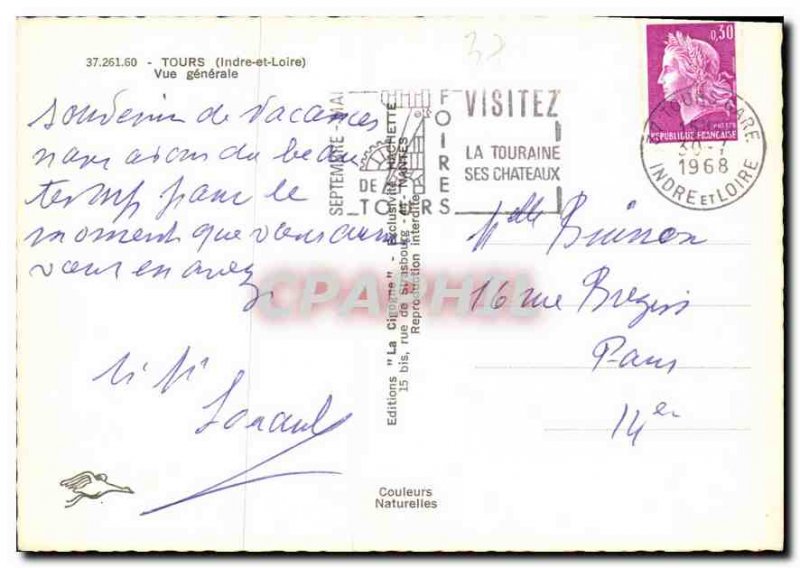 37.261.60 - TOURS (Indre-et-Loire)
Vue générale
32
souvenir de Vacances
nous avons du beau
temps pour le
moment que vous aussi
vous en avez
Editions "La Cigogne" - Exclusivité HACHETTE
15 bis, rue de Strasbourg - 44 - NANTES
Reproduction interdite
Couleurs
Naturelles
SEPTEMBRE-MAI
FOIRES
DE
TOURS
VISITEZ
LA TOURAINE
SES CHATEAUX
0,30
REPUBLIQUE FRANÇAISE
TOURS GARE
30-7
1968
INDRE ET LOIRE
Melle Buisson
16 rue
Paris
14er
CPARHIL